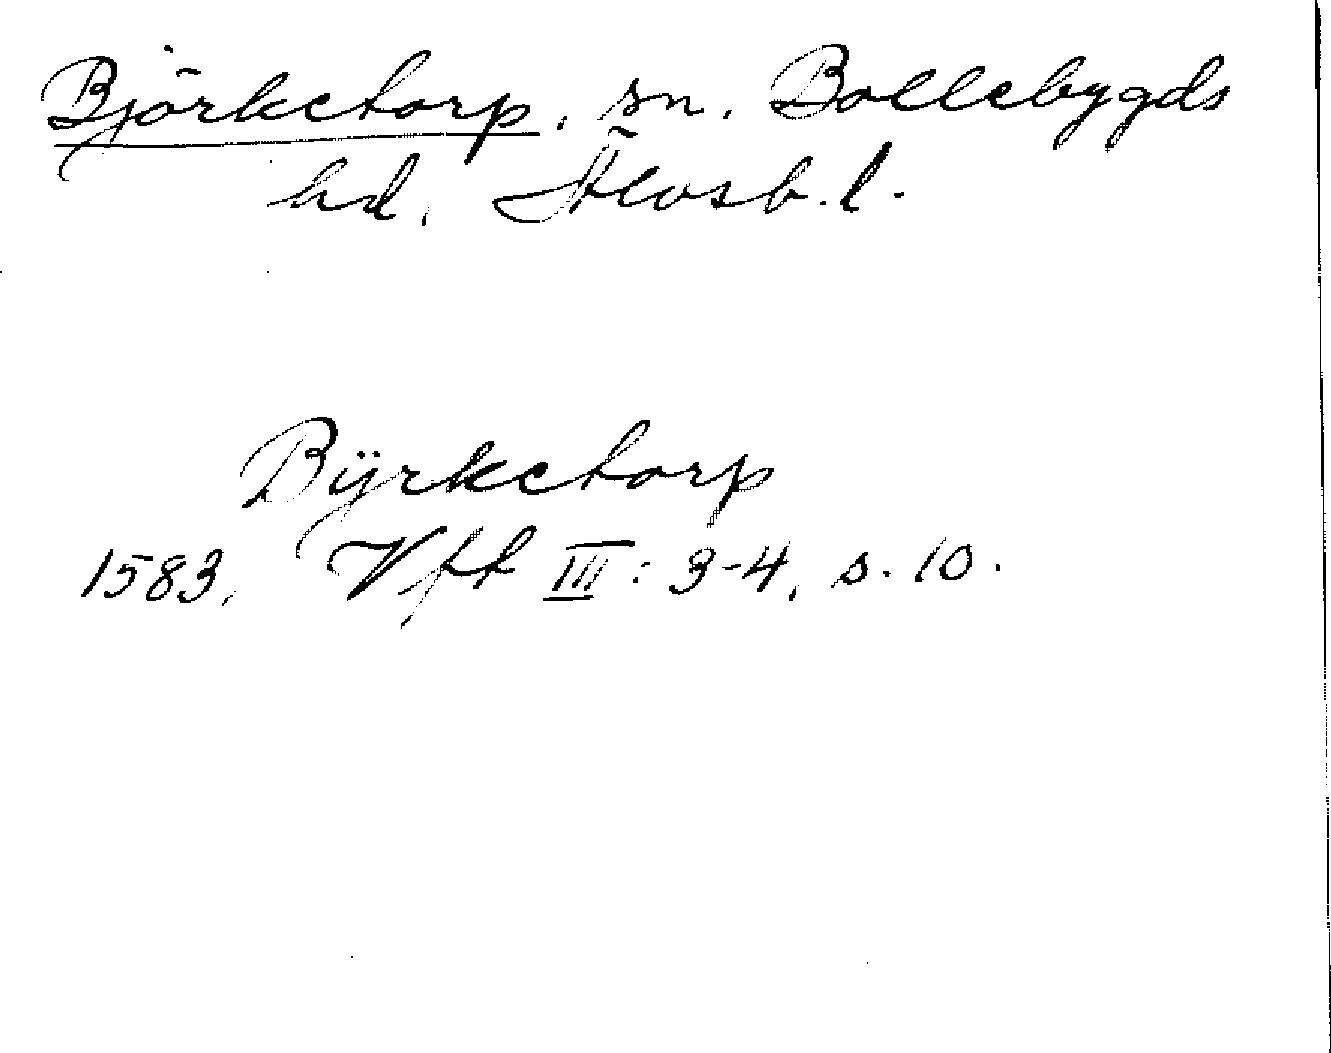 Björketorp, sn. Bollebygds
hd. Älvsb. l.
Byrketorp
1583, Vft III: 3-4, s. 10.